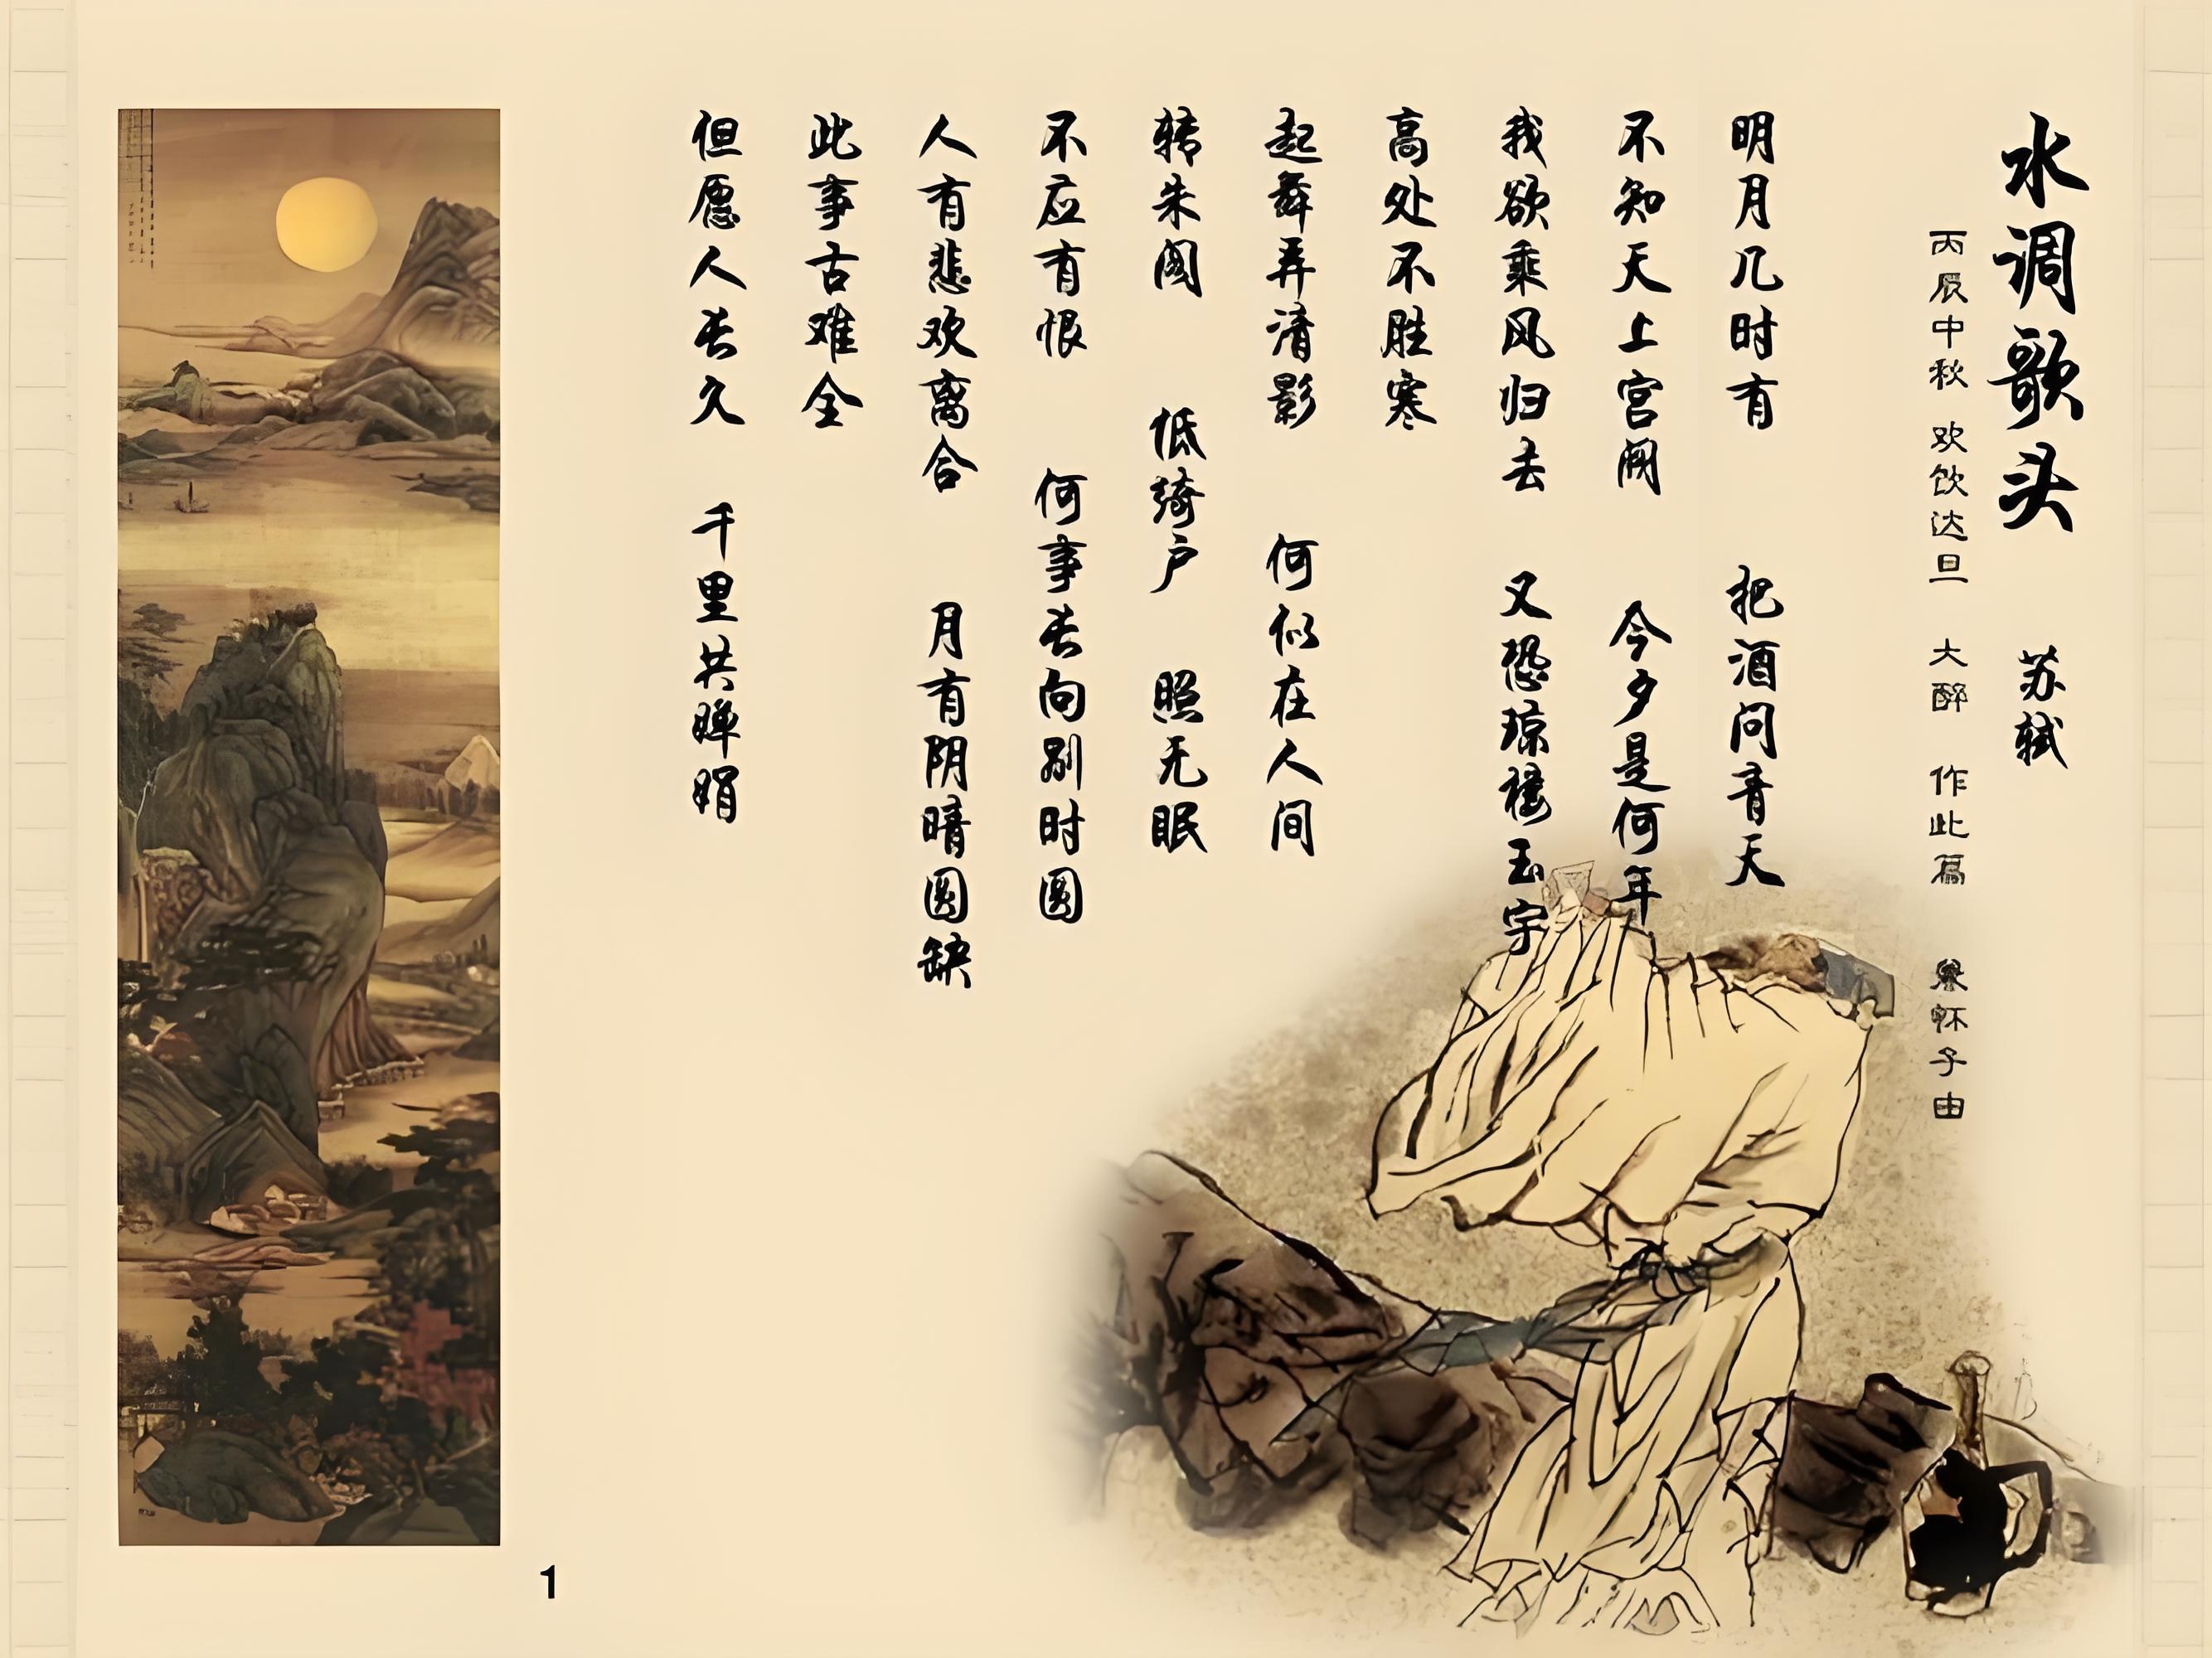 水调歌头 苏轼
丙辰中秋 欢饮达旦 大醉 作此篇 兼怀子由
明月几时有 把酒问青天
不知天上宫阙 今夕是何年
我欲乘风归去 又恐琼楼玉宇
高处不胜寒
起舞弄清影 何似在人间
转朱阁 低绮户 照无眠
不应有恨 何事长向别时圆
人有悲欢离合 月有阴晴圆缺
此事古难全
但愿人长久 千里共婵娟
1